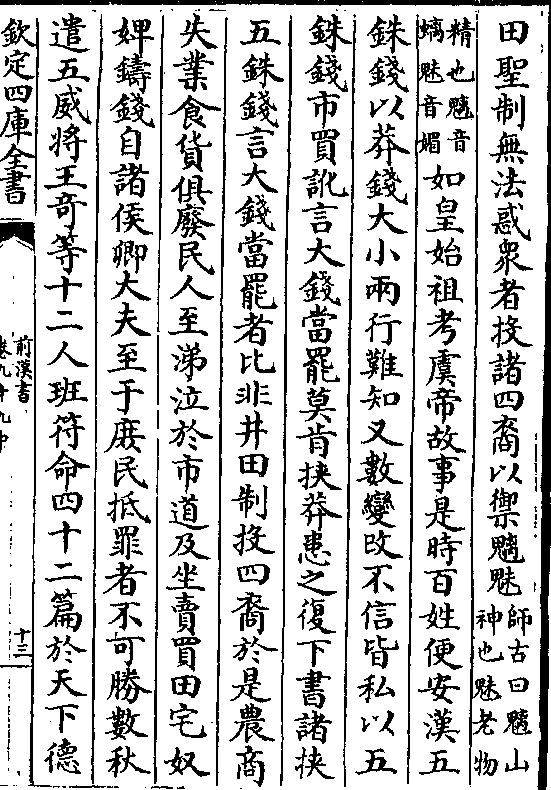 田聖制無法惑衆者投諸四裔以禦魑魅師古曰魑山神也魅老物
精也魑音螭魅音媚如皇始祖考虞帝故事是時百姓便安漢五
銖錢以莽錢大小兩行難知又數變改不信皆私以五
銖錢市買訛言大錢當罷莫肯挾莽患之復下書諸挾
五銖錢言大錢當罷者比非井田制投四裔於是農商
失業食貨俱廢民人至涕泣於市道及坐賣買田宅奴
婢鑄錢自諸侯卿大夫至于庶民抵罪者不可勝數秋
遣五威將王竒等十二人班符命四十二篇於天下德
欽定四庫全書
前漢書
卷九十九中
十三